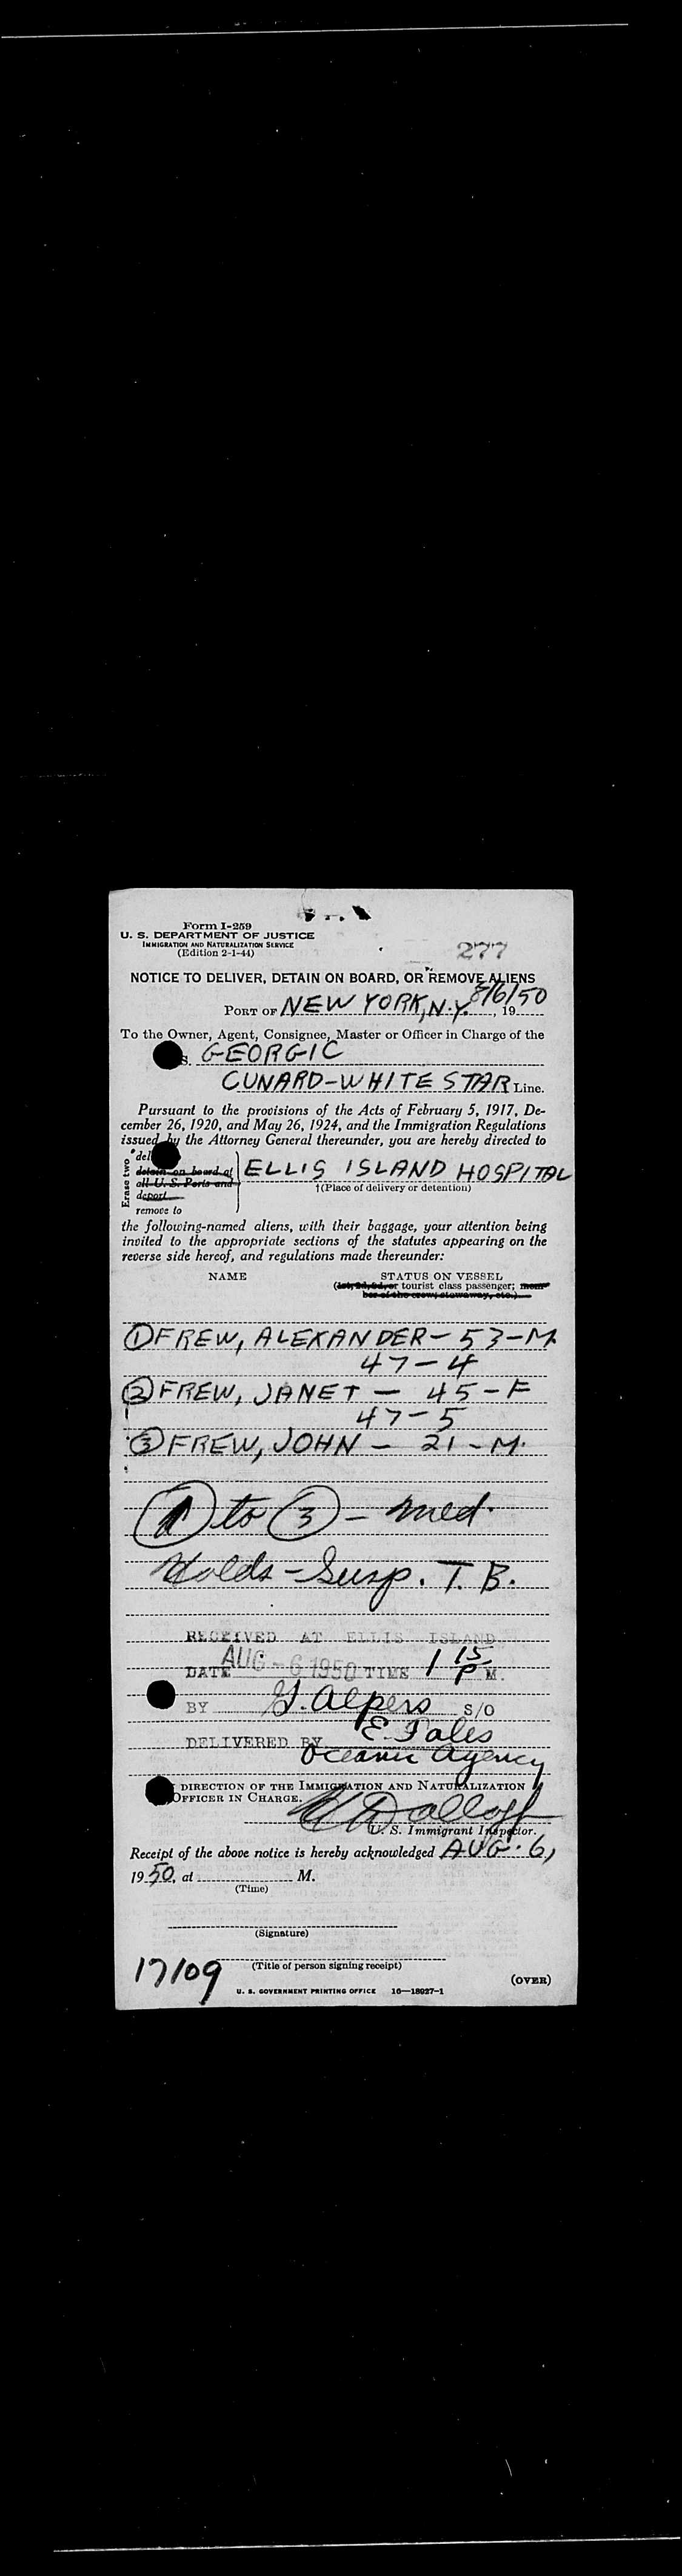 Form I-259
U. S. DEPARTMENT OF JUSTICE
IMMIGRATION AND NATURALIZATION SERVICE
(Edition 2-1-44)
277
NOTICE TO DELIVER, DETAIN ON BOARD, OR REMOVE ALIENS
PORT OF NEW YORK, N.Y. 8/6/50, 19
To the Owner, Agent, Consignee, Master or Officer in Charge of the
S. GEORGIC
CUNARD-WHITE STAR Line.
Pursuant to the provisions of the Acts of February 5, 1917, De-
cember 26, 1920, and May 26, 1924, and the Immigration Regulations
issued by the Attorney General thereunder, you are hereby directed to
Erase two
*del
detain on board at
all U. S. Ports and
deport
remove to
ELLIS ISLAND HOSPITAL
†(Place of delivery or detention)
the following-named aliens, with their baggage, your attention being
invited to the appropriate sections of the statutes appearing on the
reverse side hereof, and regulations made thereunder:
NAME STATUS ON VESSEL
(1st, 2d, 3d, or tourist class passenger; mem-
ber of the crew, stowaway, etc.)
① FREW, ALEXANDER - 53 - M.
47-4
② FREW, JANET - 45 - F
47-5
③ FREW, JOHN - 21 - M.
① to ③ - med.
Holds - Susp. T. B.
RECEIVED AT ELLIS ISLAND
DATE AUG - 6 1950 TIME 1 15 P M.
BY G. Alpers S/O
DELIVERED BY E. Fales
Oceanic Agency
DIRECTION OF THE IMMIGRATION AND NATURALIZATION
OFFICER IN CHARGE.
U. S. Immigrant Inspector.
Receipt of the above notice is hereby acknowledged AUG. 6,
1950, at M.
(Time)
(Signature)
(Title of person signing receipt)
17109
(OVER)
U. S. GOVERNMENT PRINTING OFFICE 16—18927-1